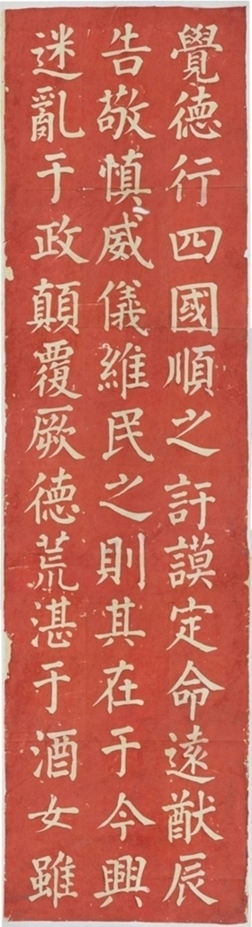 覺德行四國順之訏謨定命遠猷辰
告敬慎威儀維民之則其在于今興
迷亂于政顛覆厥德荒湛于酒女雖